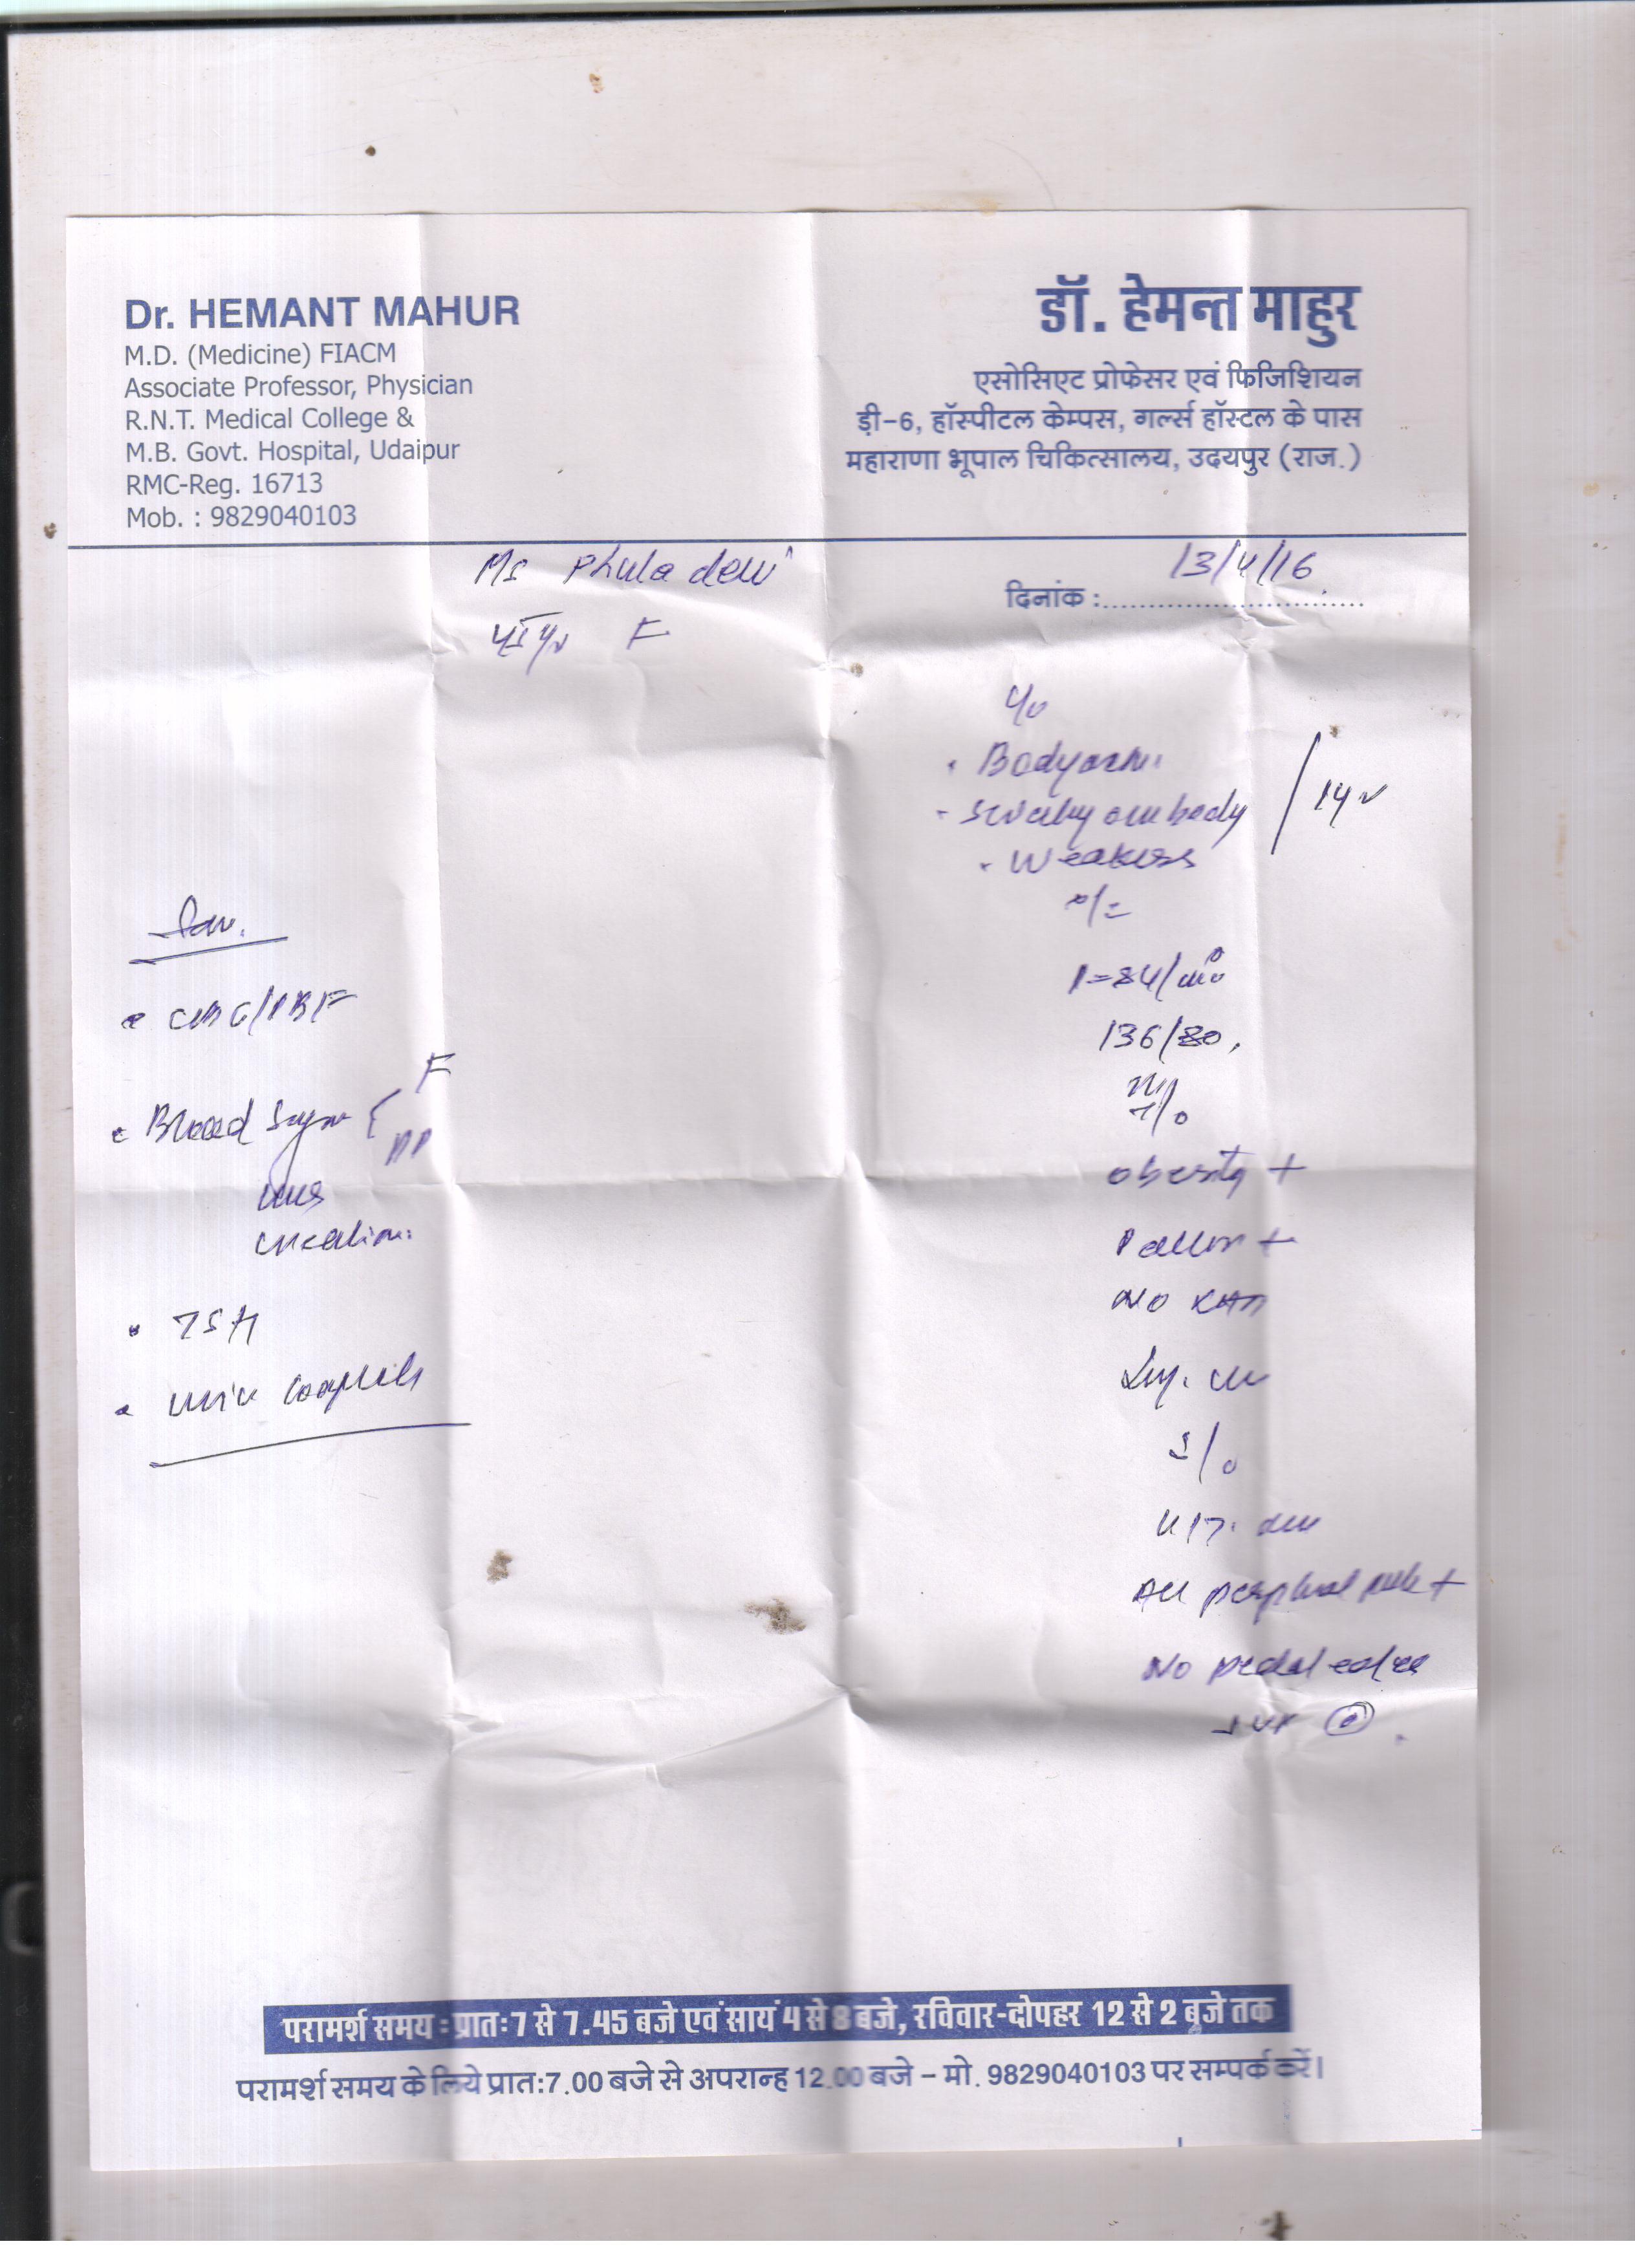 Dr. HEMANT MAHUR
M.D. (Medicine) FIACM
Associate Professor, Physician
R.N.T. Medical College &
M.B. Govt. Hospital, Udaipur
RMC-Reg. 16713
Mob. : 9829040103
डॉ. हेमन्त माहुर
एसोसिएट प्रोफेसर एवं फिजिशियन
ड़ी-6, हॉस्पीटल केम्पस, गर्ल्स हॉस्टल के पास
महाराणा भूपाल चिकित्सालय, उदयपुर (राज.)
Ms Phula devi
F
13/4/16
दिनांक :
C/o
• Bodyache
body
• Weakness
O/E
P=84/mt
136/80,
obesity +
Pallor +
No
S/o
All peripheral pulse +
No pedal edema
JVP
Inv.
• CBC/PBF
• Blood Sugar { F
PP
creatinine
• TSH
• Urine complete
परामर्श समय : प्रातः 7 से 7.45 बजे एवं सायं 4 से 8 बजे, रविवार-दोपहर 12 से 2 बजे तक
परामर्श समय के लिये प्रातः 7.00 बजे से अपरान्ह 12.00 बजे – मो. 9829040103 पर सम्पर्क करें।